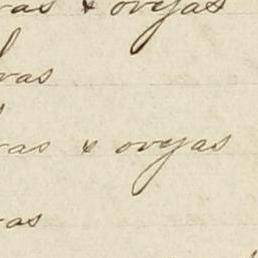 vas & ovejas
vas
vas & ovejas
vas